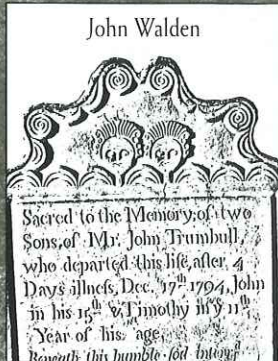 John Walden
Sacred to the Memory, of two
Sons, of Mr. John Trumbull,
who departed this life, after 4
Days illness, Dec. 17th 1794, John
in his 15th & Timothy in y 11th
Year of his age,
Beneath this humble